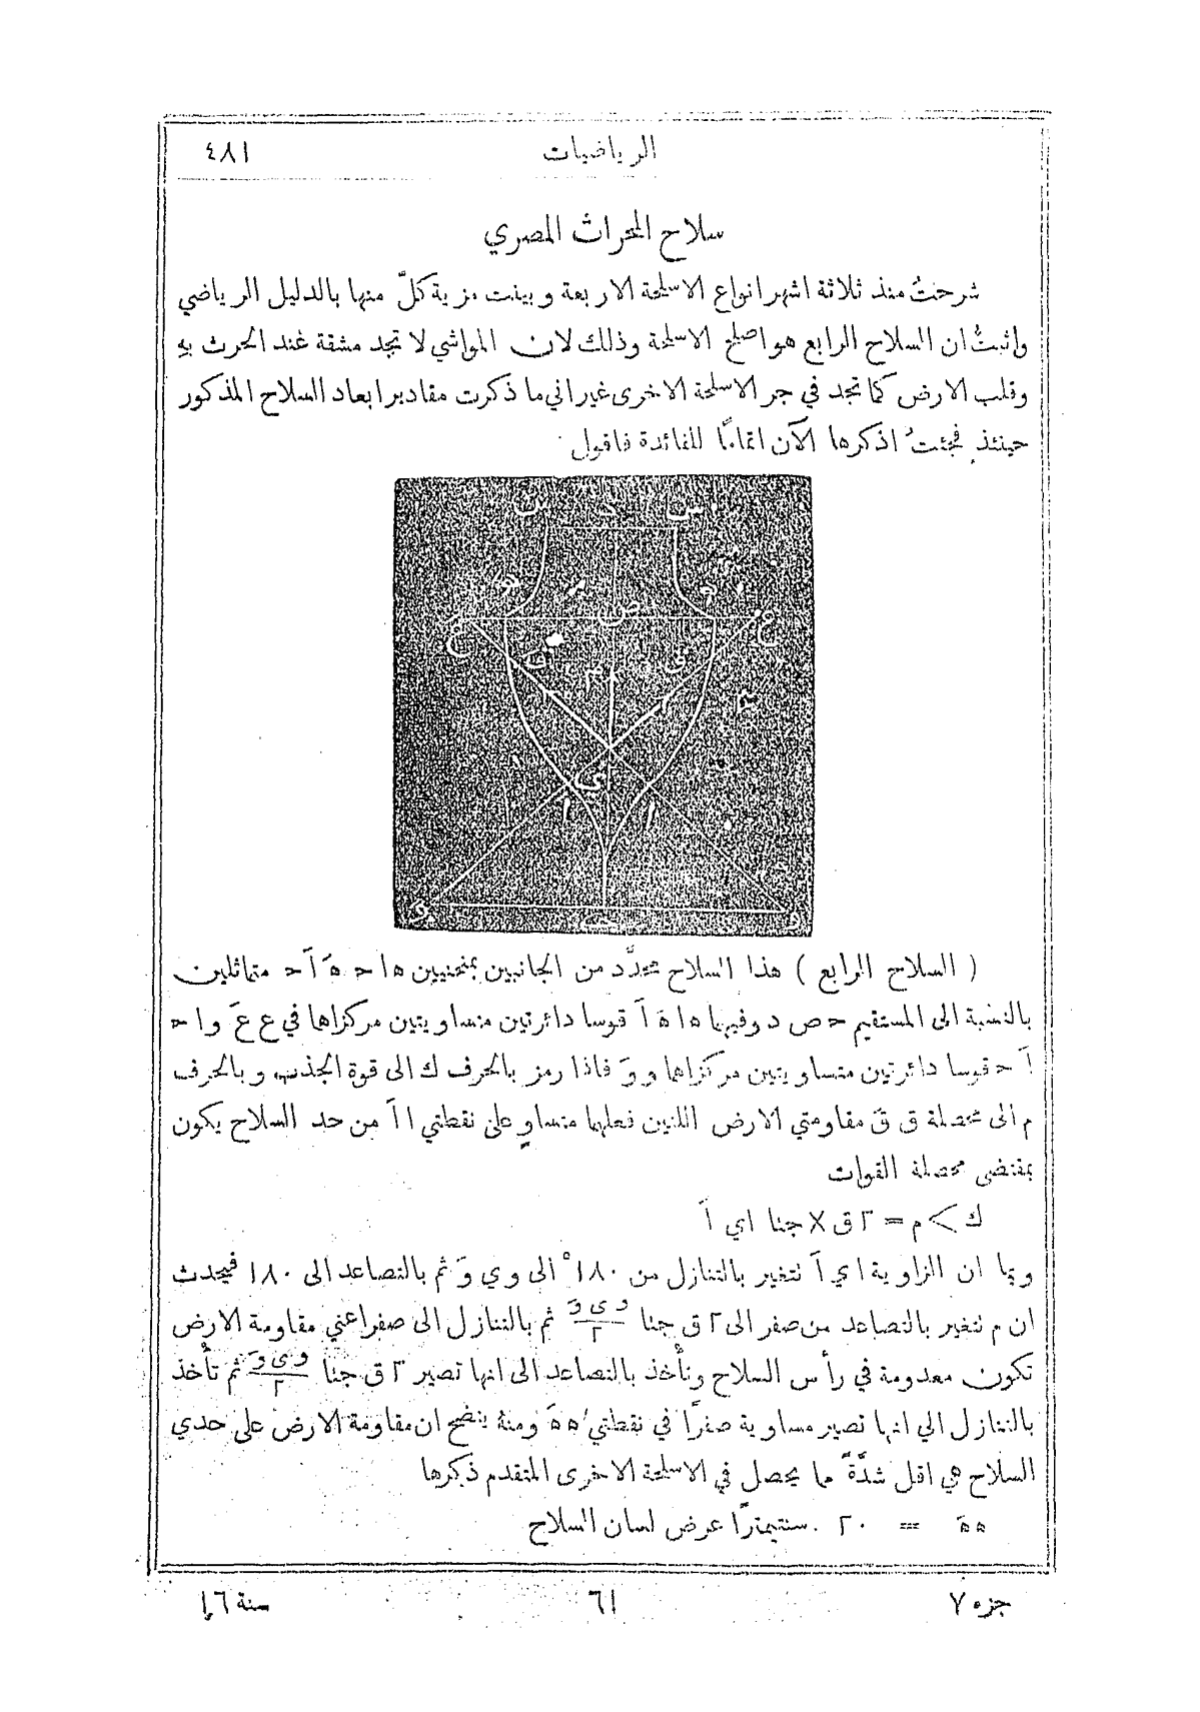 الرياضيات ٤٨١
سلاح المحراث المصري
شرحتُ منذ ثلاثة اشهر انواع الاسلحة الاربعة وبينت مزية كلّ منها بالدليل الرياضي
واثبتُّ ان السلاح الرابع هو اصلح الاسلحة وذلك لان المواشي لا تجد مشقة عند الحرث بهِ
وقلب الارض كما تجد في جر الاسلحة الاخرى غير اني ما ذكرت مقادير ابعاد السلاح المذكور
حينئذٍ فجئتُ اذكرها الآن اتمامًا للفائدة فاقول
س د س
ه ه
ع ص ع
ق ق
م
ي
ا ا
و ح و
( السلاح الرابع ) هذا السلاح محدَّد من الجانبين بمنحنيين ه ا ح هَ اَ ح متماثلين
بالنسبة الى المستقيم ح ص د وفيهما ه ا هَ اَ قوسا دائرتين متساويتين مركزاهما في ع عَ و ا ح
اَ ح قوسا دائرتين متساويتين مركزاهما و وَ فاذا رمز بالحرف ك الى قوة الجذب وبالحرف
م الى محصلة ق قَ مقاومتي الارض اللتين فعلهما متساوٍ على نقطتي ا اَ من حد السلاح يكون
بمقتضى محصلة القوات
ك > م = ٢ ق × جتا اي اَ
وبما ان الزاوية ا ي اَ تتغير بالتنازل من ١٨٠° الى و ي وَ ثم بالتصاعد الى ١٨٠ فيحدث
ان م تتغير بالتصاعد من صفر الى ٢ ق جتا و ى وَ / ٢ ثم بالتنازل الى صفر اعني مقاومة الارض
تكون معدومة في رأس السلاح وتأخذ بالتصاعد الى انها تصير ٢ ق جتا و ى وَ / ٢ ثم تأخذ
بالتنازل الي انها تصير مساوية صفرًا في نقطتي ه هَ ومنهُ يتضح ان مقاومة الارض على حدي
السلاح هي اقل شدَّةً مما يحصل في الاسلحة الاخرى المتقدم ذكرها
ه هَ = ٢٠ سنتيمترًا عرض لسان السلاح
جزء ٧ ٦١ سنة ١٦